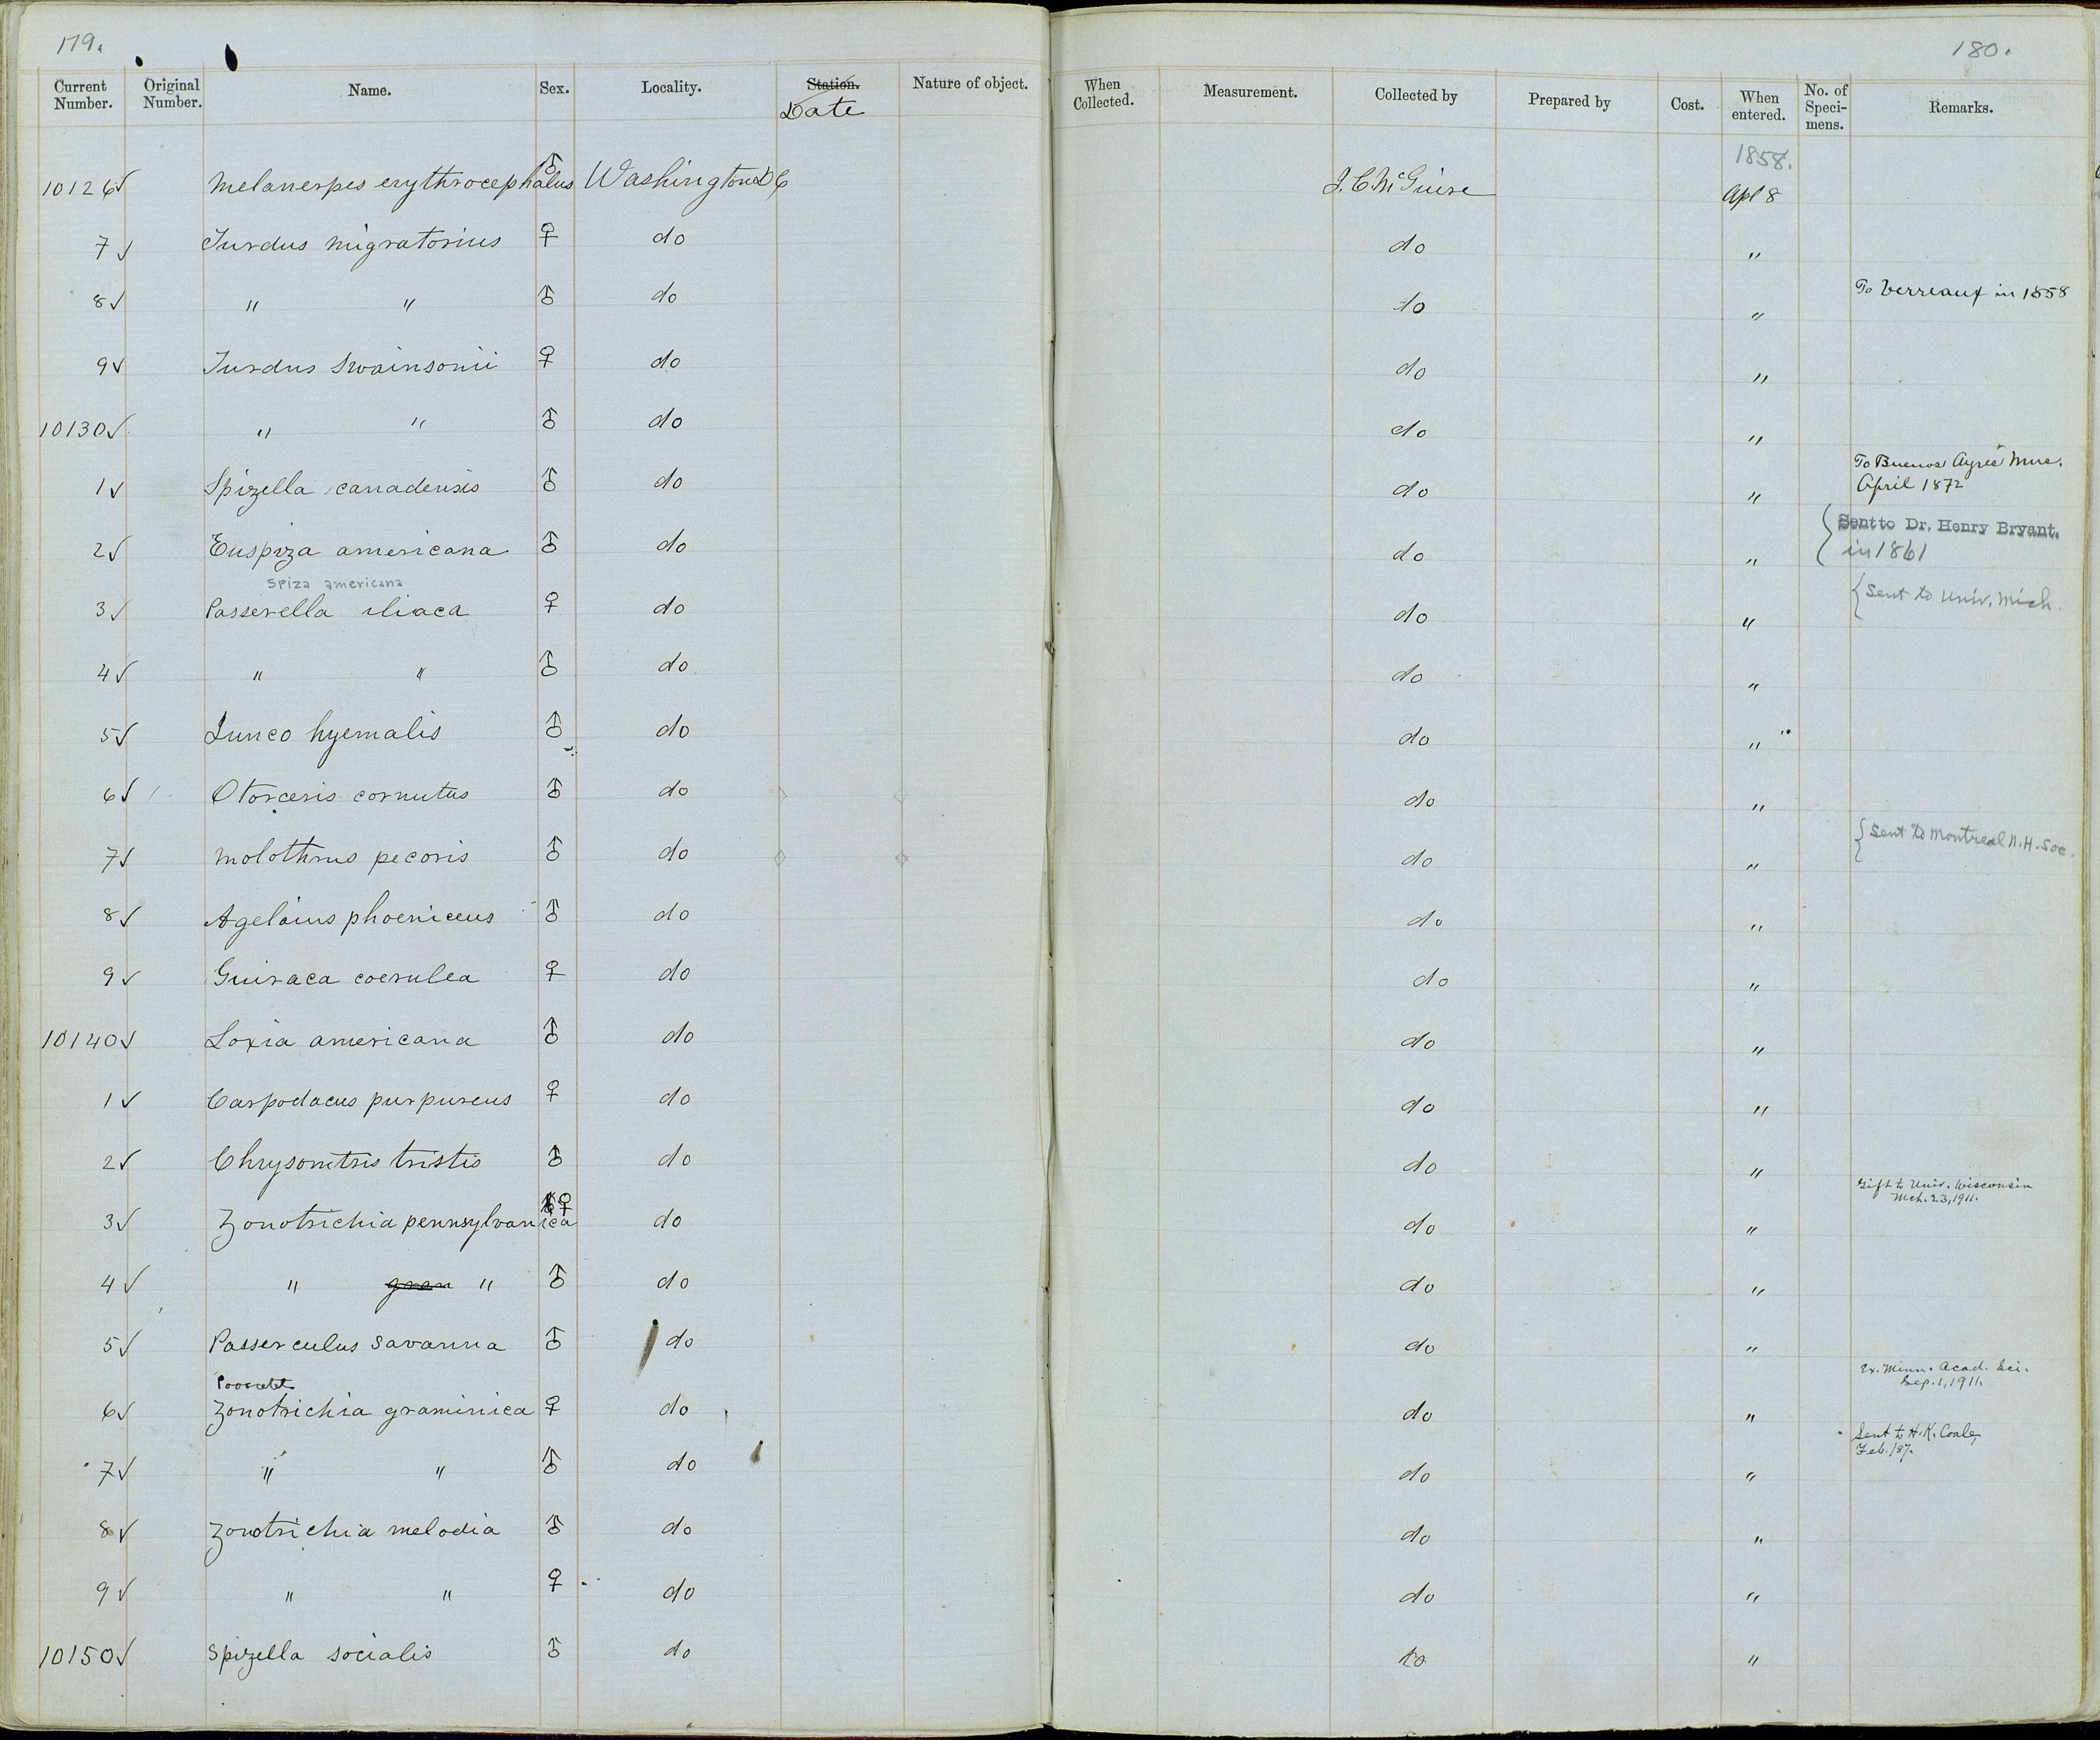 179.
180.
Current Number. Original Number. Name. Sex. Locality. Station. Date Nature of object. When Collected. Measurement. Collected by Prepared by Cost. When entered. No. of Speci-mens. Remarks.
1858.
10126√ Melanerpes erythrocephalus ♂ Washington D C J. C. McGuire Apl 8
7√ Turdus migratorius ♀ do do "
8√ " " ♂ do do " To Verreaux in 1858
9√ Turdus Swainsonii ♀ do do "
10130√ " " ♂ do do "
1√ Spizella canadensis ♂ do do " To Buenos Ayres Mus. April 1872
2√ Euspiza americana ♂ do do " { Sent to Dr. Henry Bryant. in 1861
Spiza americana
3√ Passerella iliaca ♀ do do " { Sent to Univ. Mich.
4√ " " ♂ do do "
5√ Junco hyemalis ♂ do do "
6√ Otorceris cornutus ♂ do do "
7√ Molothrus pecoris ♂ do do " { Sent to Montreal N. H. Soc.
8√ Agelaius phoeniceus ♂ do do "
9√ Guiraca coerulea ♀ do do "
10140√ Loxia americana ♂ do do "
1√ Carpodacus purpureus ♀ do do "
2√ Chrysomitris tristis ♂ do do "
3√ Zonotrichia pennsylvanica ♀ do do " Gift to Univ. Wisconsin Mch. 23, 1911.
4√ " gram " ♂ do do "
5√ Passerculus savanna ♂ do do "
Poocaetes
6√ Zonotrichia graminica ♀ do do " Ex. Minn. Acad. Sci. Sep. 1, 1911.
7√ " " ♂ do do " Sent to H. K. Coale, Feb. 187.
8√ Zonotrichia melodia ♂ do do "
9√ " " ♀ do do "
10150√ Spizella socialis ♂ do do "